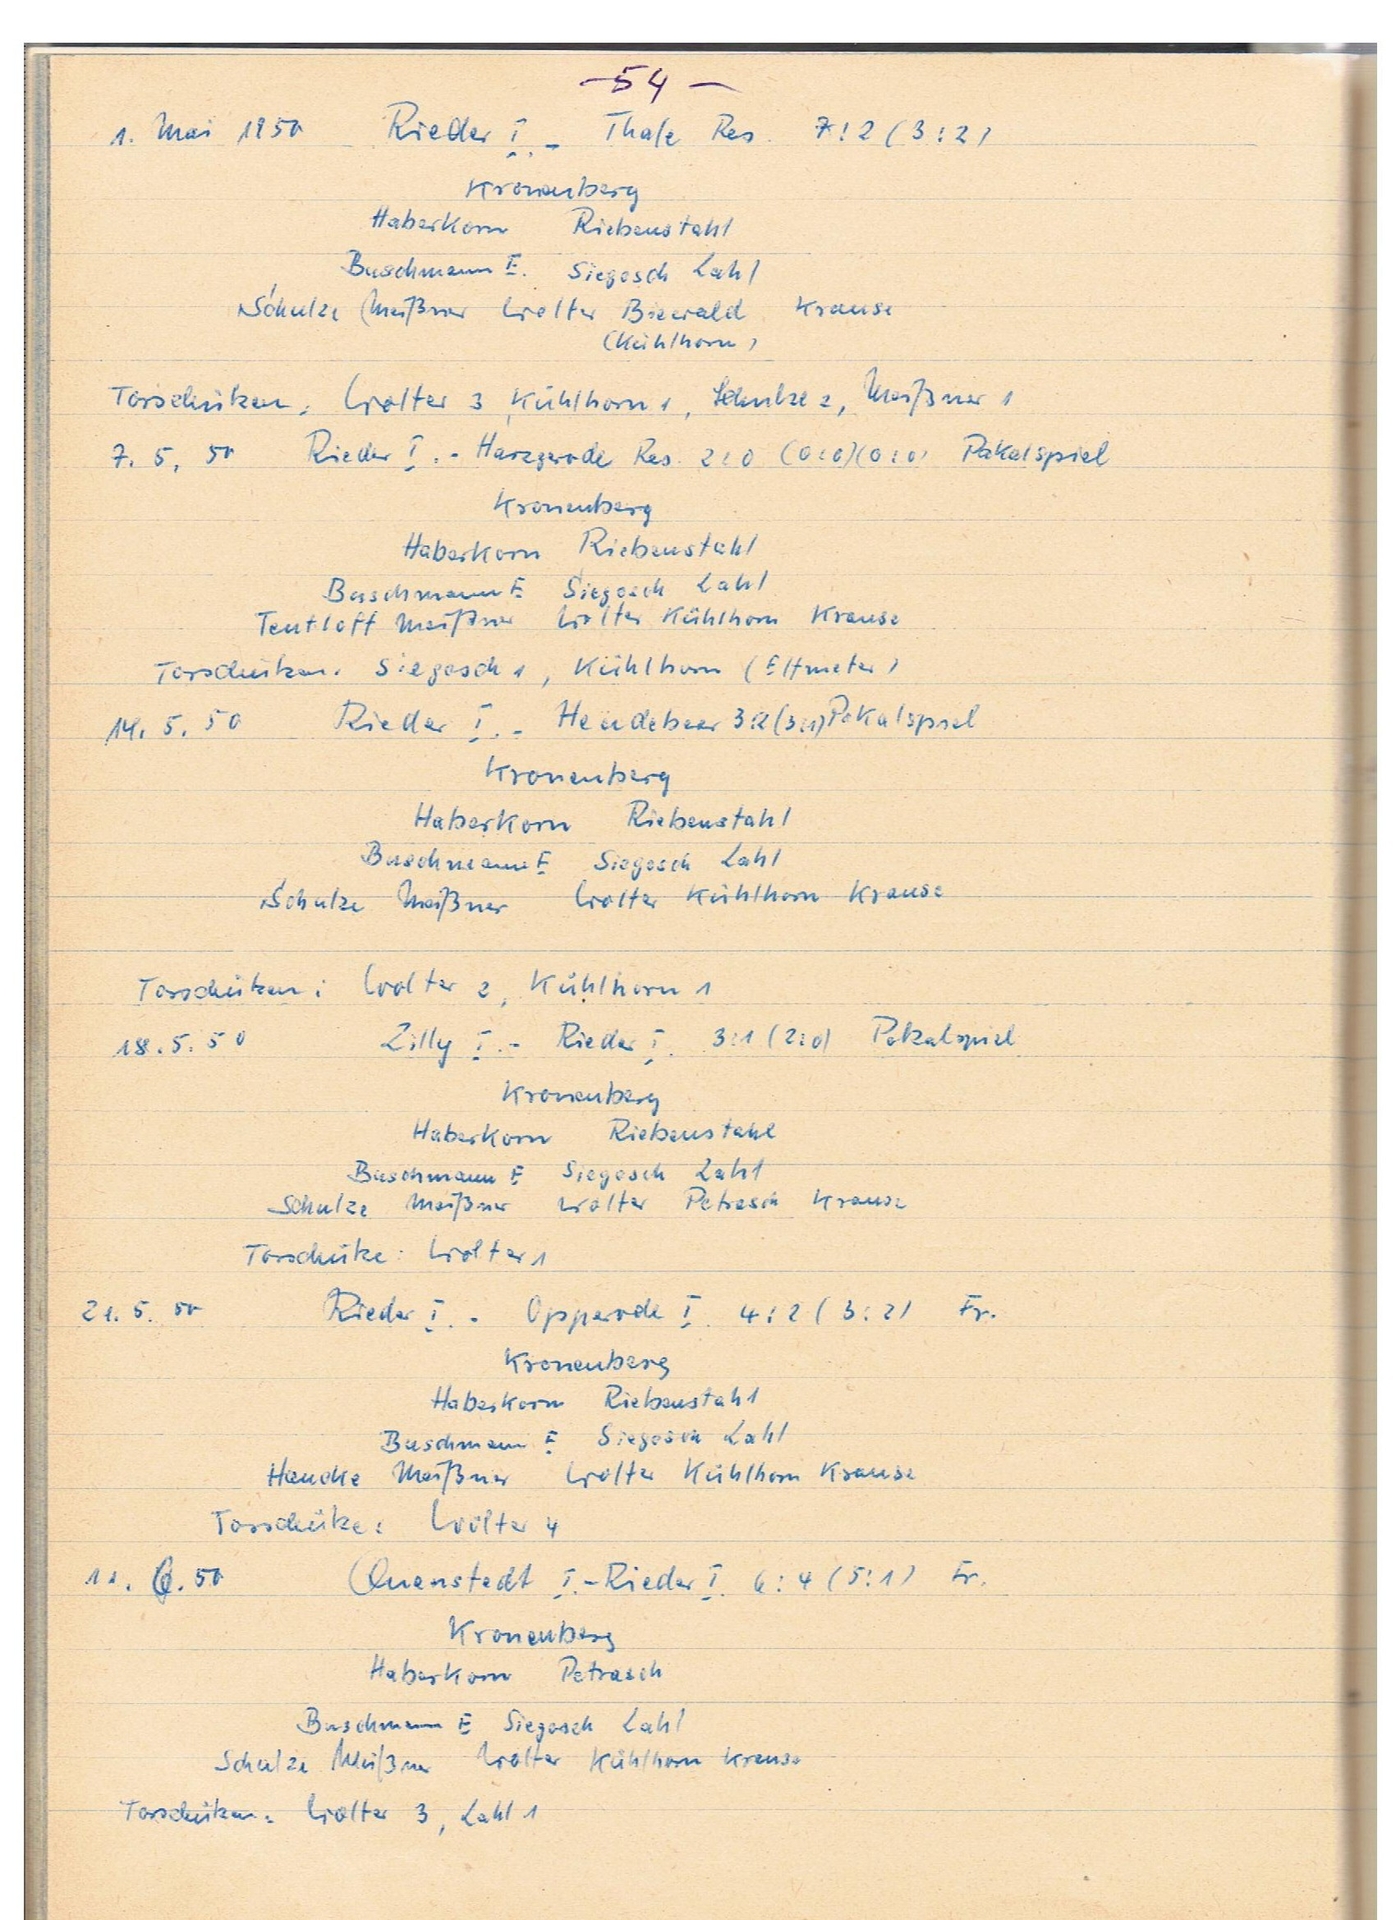 - 54 -
1. Mai 1950 Rieder I. - Thale Res. 7:2 (3:2)
Kronenberg
Haberkorn Riebenstahl
Buschmann E. Siegosch Lahl
Schulze Meißner Wolter Biewald Krause
(Kühlhorn)
Torschützen: Wolter 3, Kühlhorn 1, Schulze 2, Meißner 1
7. 5. 50 Rieder I. - Harzgerode Res. 2:0 (0:0)(0:0) Pokalspiel
Kronenberg
Haberkorn Riebenstahl
Buschmann E Siegosch Lahl
Teutloff Meißner Wolter Kühlhorn Krause
Torschützen: Siegosch 1, Kühlhorn (Elfmeter)
14. 5. 50 Rieder I. - Heudeber 3:2 (3:1) Pokalspiel
Kronenberg
Haberkorn Riebenstahl
Buschmann E Siegosch Lahl
Schulze Meißner Wolter Kühlhorn Krause
Torschützen: Wolter 2, Kühlhorn 1
18. 5. 50 Zilly I. - Rieder I. 3:1 (2:0) Pokalspiel
Kronenberg
Haberkorn Riebenstahl
Buschmann E Siegosch Lahl
Schulze Meißner Wolter Petrasch Krause
Torschütze: Wolter 1
21. 5. 50 Rieder I. - Opperode I. 4:2 (3:2) Fr.
Kronenberg
Haberkorn Riebenstahl
Buschmann E Siegosch Lahl
Haucke Meißner Wolter Kühlhorn Krause
Torschütze: Wolter 4
11. 6. 50 Quenstedt I. - Rieder I. 6:4 (5:1) Fr.
Kronenberg
Haberkorn Petrasch
Buschmann E Siegosch Lahl
Schulze Meißner Wolter Kühlhorn Krause
Torschützen: Wolter 3, Lahl 1